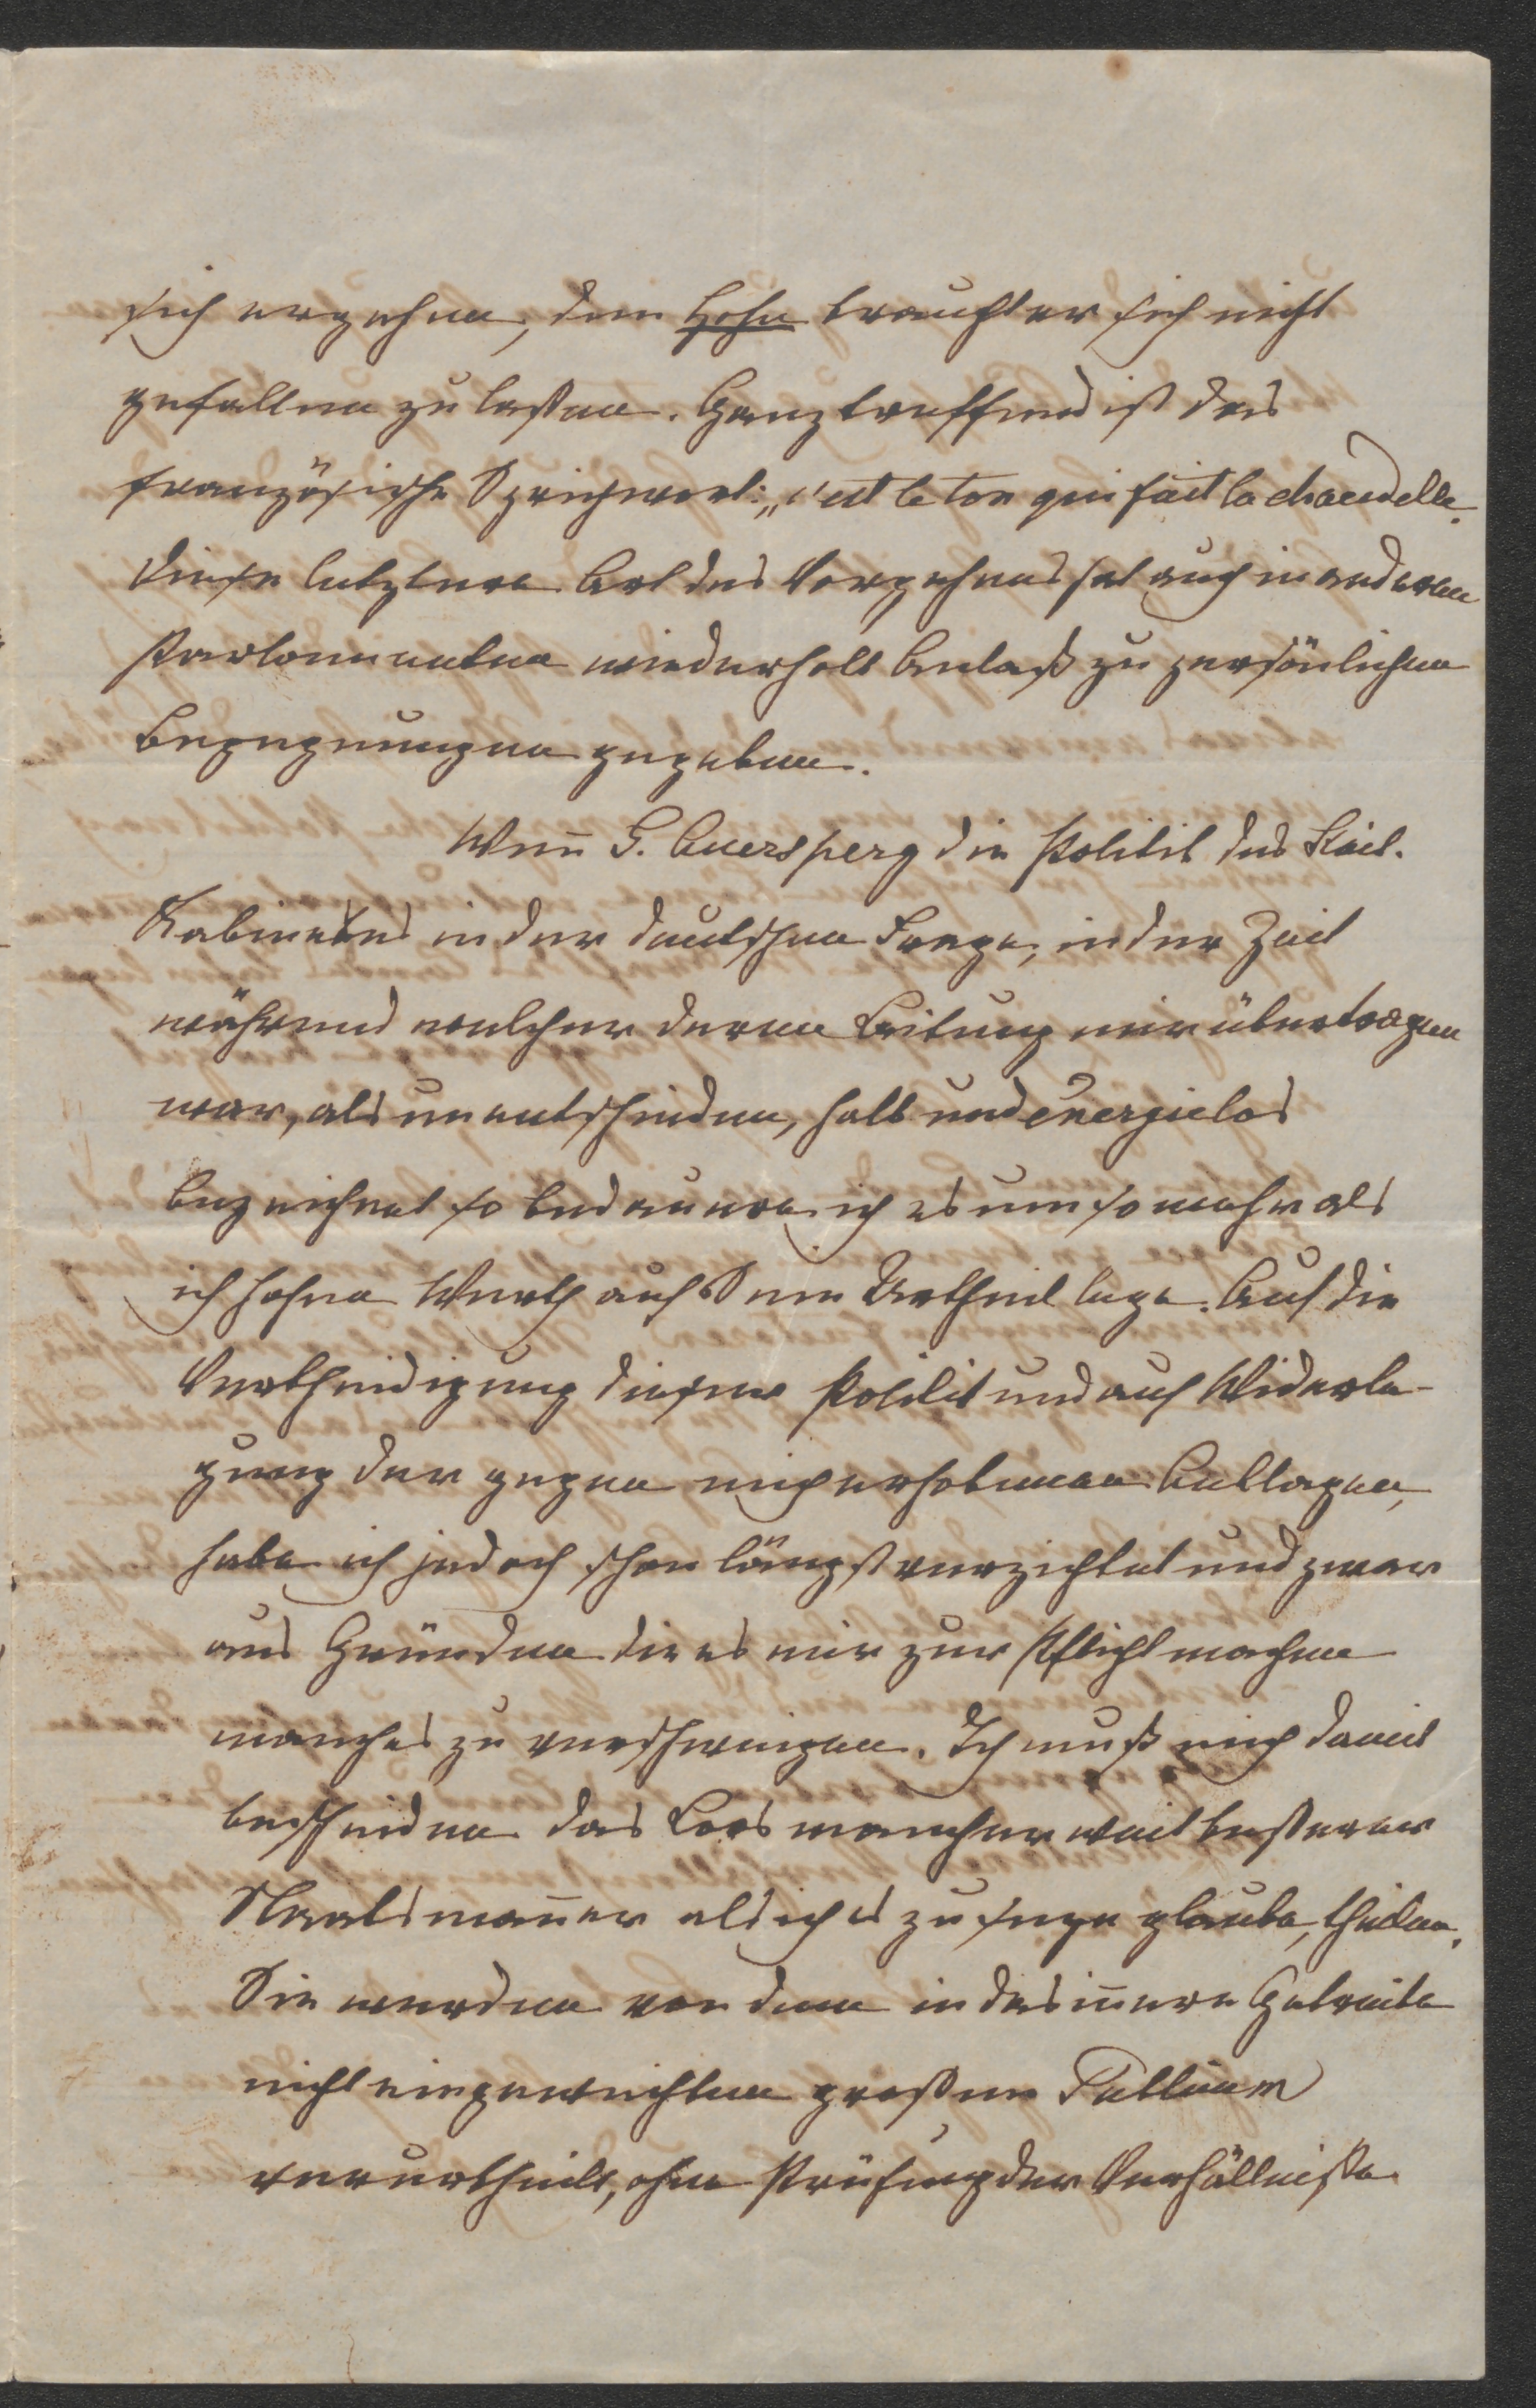 sich ergehen, den Hohn braucht er sich nicht
gefallen zu laßen. Ganz treffend ist das
französische Sprichwort: „c'est le ton qui fait la chandelle.
Diese letztere Art des Vorgehens hat auch in anderen
Parlamenten wiederholt Anlaß zu persönlichen
Begegnungen gegeben.
Wen̄ G. Auersperg die Politik des Kais.
Kabinetes in der deutschen Frage, in der Zeit
während welcher deren Leitung mir übertragen
war, als unentschieden, halb und energielos
bezeichnet so bedauere ich es um so mehr als
ich hohen Werth auf Sein Urtheil lege. Auf die
Vertheidigung dieser Politik und auf Widerle-
gung der gegen mich erhobenen Anklagen,
habe ich jedoch schon längst verzichtet und zwar
aus Gründen die es mir zur Pflicht machen
manches zu verschweigen. Ich muß mich damit
bescheiden das Loos mancher weit beßerer
Staatsman̄er als ich es zu seyn glaube, theilen.
Sie werden von dem in das in̄ere Getreibe
nicht eingeweihten großen Publicum
verurtheilt, ohne Prüfung der Verhältniße